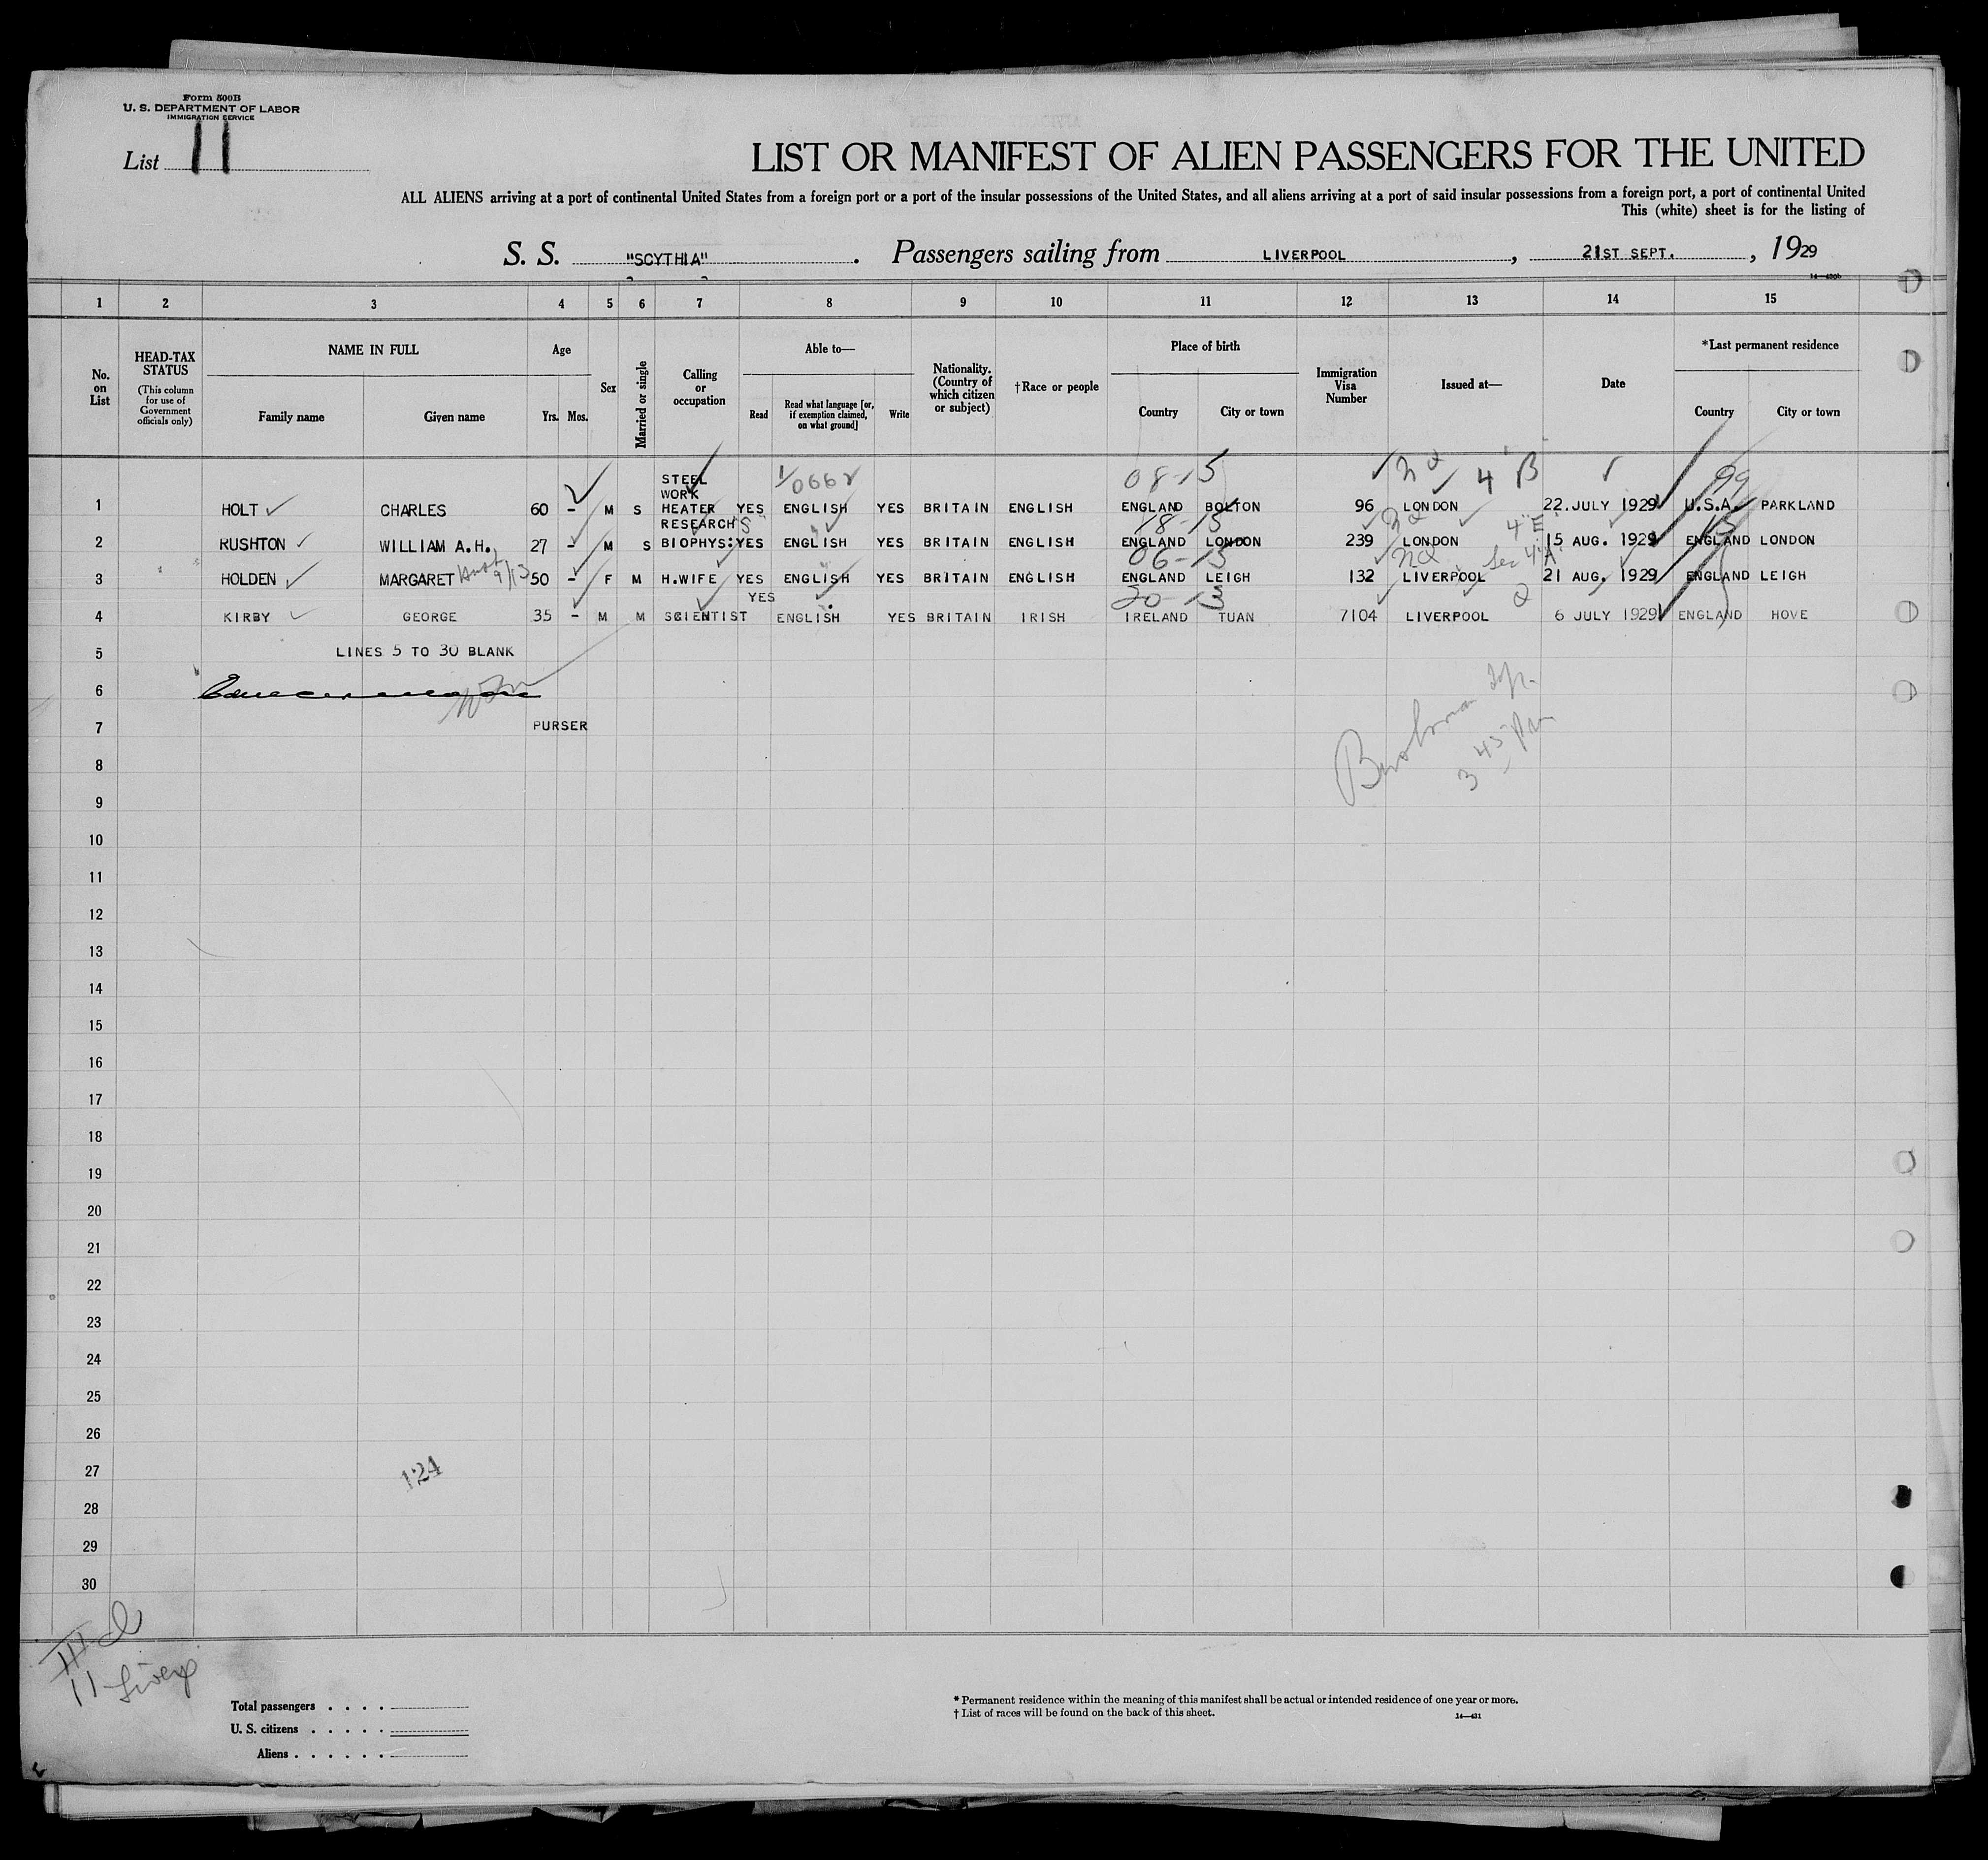 Form 500B
U. S. DEPARTMENT OF LABOR
IMMIGRATION SERVICE
List 11
LIST OR MANIFEST OF ALIEN PASSENGERS FOR THE UNITED
ALL ALIENS arriving at a port of continental United States from a foreign port or a port of the insular possessions of the United States, and all aliens arriving at a port of said insular possessions from a foreign port, a port of continental United
This (white) sheet is for the listing of
S. S. "SCYTHIA" . Passengers sailing from LIVERPOOL , 21ST SEPT. , 1929
1 2 3 4 5 6 7 8 9 10 11 12 13 14 15
No. on List
HEAD-TAX STATUS (This column for use of Government officials only)
NAME IN FULL
Family name Given name
Age
Yrs. Mos.
Sex
Married or single
Calling or occupation
Able to—
Read
Read what language [or, if exemption claimed, on what ground]
Write
Nationality. (Country of which citizen or subject)
†Race or people
Place of birth
Country City or town
Immigration Visa Number
Issued at—
Date
*Last permanent residence
Country City or town
08-15 2d 4 B 99
1 HOLT CHARLES 60 - M S STEEL WORK HEATER YES ENGLISH YES BRITAIN ENGLISH ENGLAND BOLTON 96 LONDON 22 JULY 1929 U.S.A. PARKLAND
18-15 2d 4"E"
2 RUSHTON WILLIAM A.H. 27 - M S RESEARCH BIOPHYS: YES ENGLISH YES BRITAIN ENGLISH ENGLAND LONDON 239 LONDON 15 AUG. 1929 ENGLAND LONDON
06-15 2d Sec 4"A"
3 HOLDEN MARGARET 50 - F M H.WIFE YES ENGLISH YES BRITAIN ENGLISH ENGLAND LEIGH 132 LIVERPOOL 21 AUG. 1929 ENGLAND LEIGH
20-13 Q
4 KIRBY GEORGE 35 - M M SCIENTIST YES ENGLISH YES BRITAIN IRISH IRELAND TUAN 7104 LIVERPOOL 6 JULY 1929 ENGLAND HOVE
5 LINES 5 TO 30 BLANK
6
7 PURSER
3 45 Pm
8
9
10
11
12
13
14
15
16
17
18
19
20
21
22
23
24
25
26
27
124
28
29
30
IId
11 Liverp
Total passengers . . . .
U. S. citizens . . . . .
Aliens . . . . . .
* Permanent residence within the meaning of this manifest shall be actual or intended residence of one year or more.
† List of races will be found on the back of this sheet.
14—431